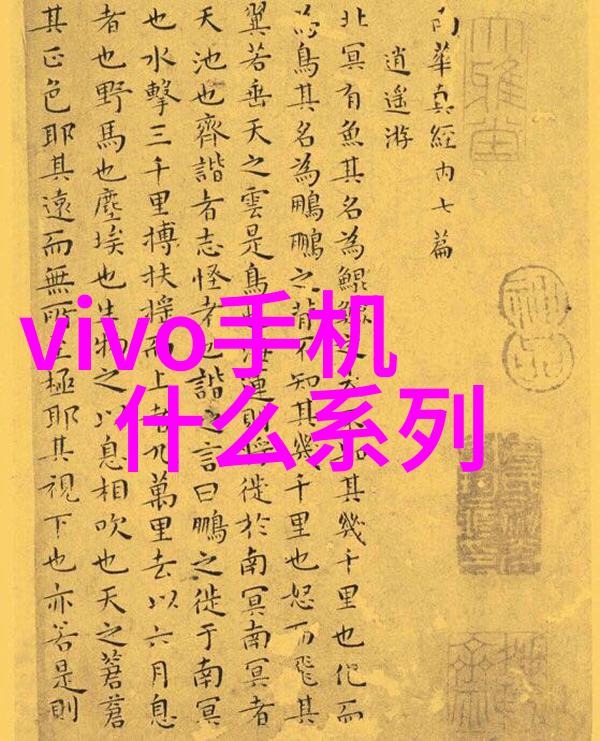 南華真經內七篇
逍遙游
北冥有魚其名為鯤鯤之大不知其幾千里也化而
為鳥其名為鵬鵬之背不知其幾千里也怒而飛其
翼若垂天之雲是鳥也海運則將徙於南冥南冥者
天池也齊諧者志怪者也諧之言曰鵬之徙于南冥
也水擊三千里摶扶搖而上者九萬里去以六月息
者也野馬也塵埃也生物之以息相吹也天之蒼蒼
其正色耶其遠而無所至極耶其視下也亦若是則
大雅堂
vivo手机
什么系列